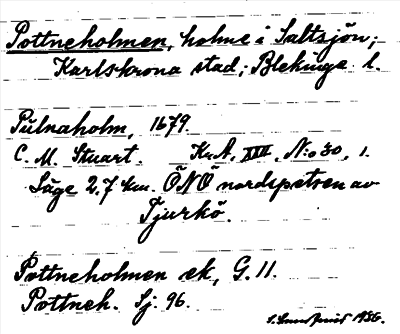 Pottneholmen, holme i Saltsjön;
Karlskrona stad; Blekinge l.
Pulnaholm, 1679.
C. M. Stuart. Kr.A, XIII, N:o 30, 1.
Läge 2,7 km. ÖNÖ nordspetsen av
Tjurkö.
Pottneholmen ek, G. 11.
Pottneh. Sj. 96.
1956.